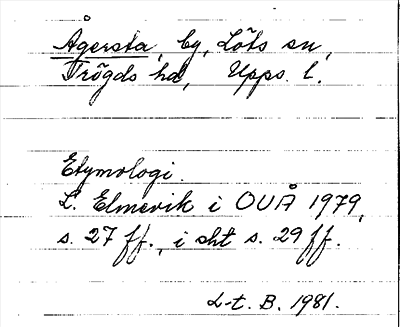 Ågersta, by, Löts sn,
Trögds hd, Upps. l.
Etymologi.
L. Elmevik i OUÅ 1979,
s. 27 ff., i sht s. 29 ff.
L-t. B. 1981.